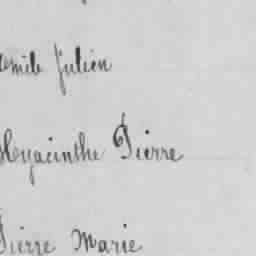 Emile Julien
Hyacinthe Pierre
Pierre Marie